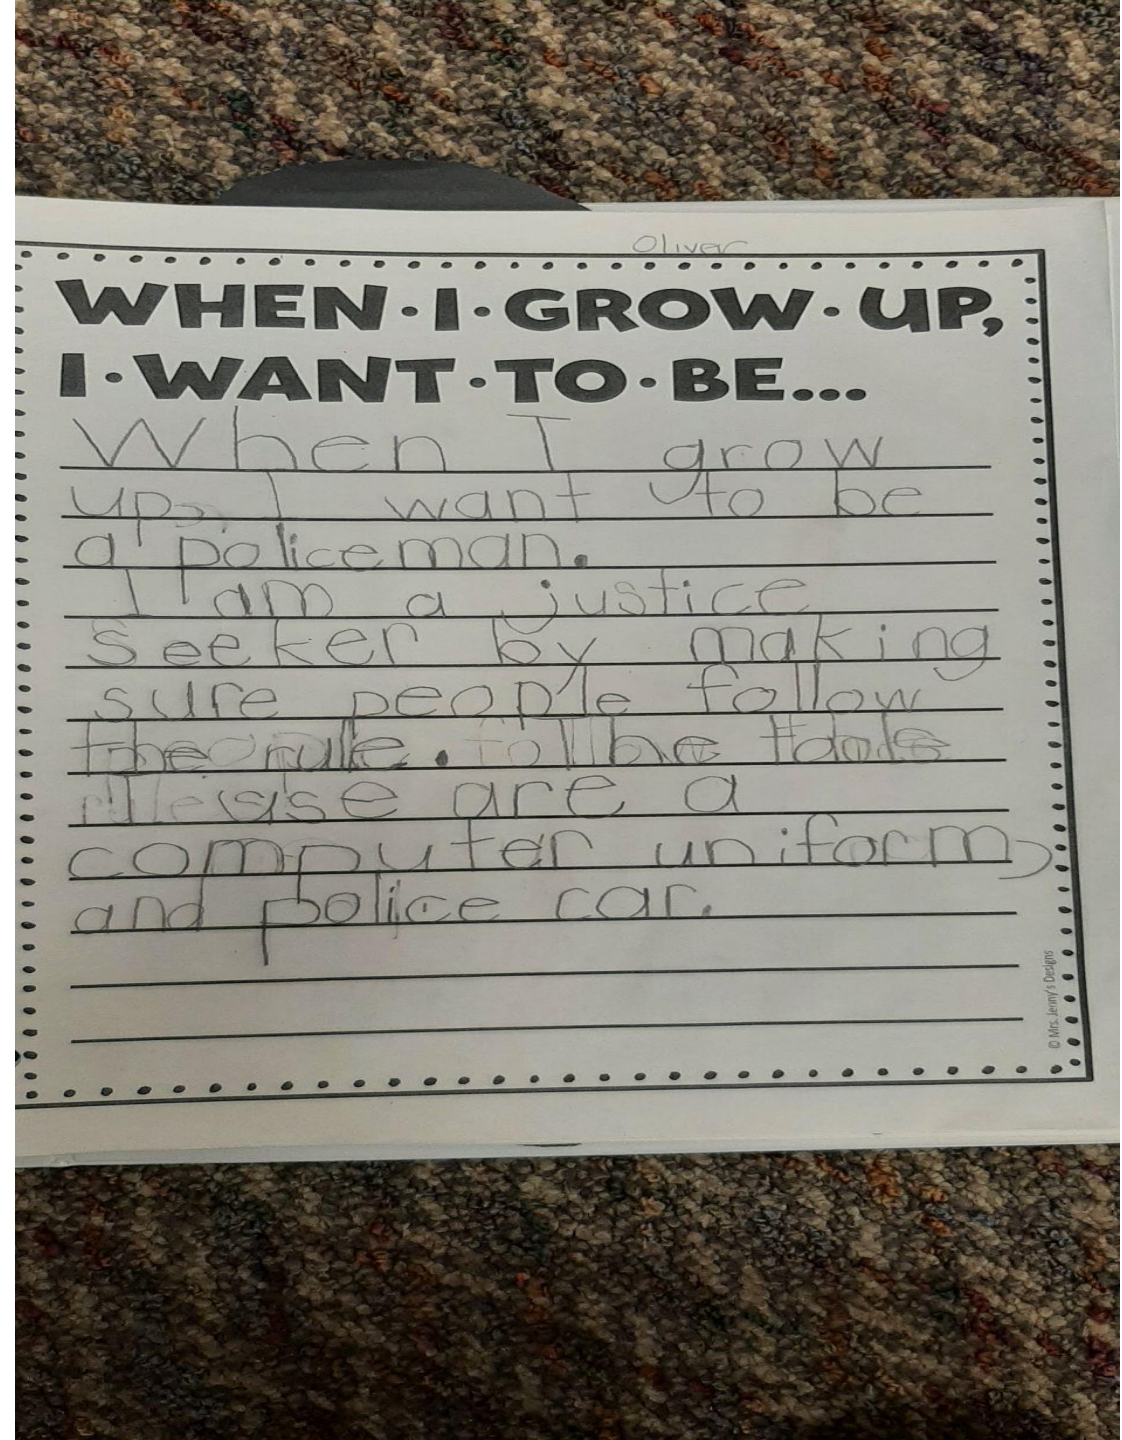 Oliver
WHEN·I·GROW·UP,
I·WANT·TO·BE...
When I grow
up, I want to be
a policeman.
I am a justice
seeker by making
sure people follow
the rule. tools
use are a
computer uniform,
and police car.
© Mrs. Jenny's Designs